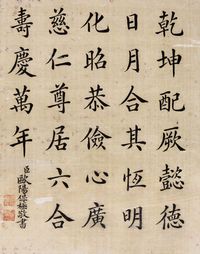 乾坤配厥懿德
日月合其恆明
化昭恭儉心廣
慈仁尊居六合
壽慶萬年
臣歐陽保極敬書